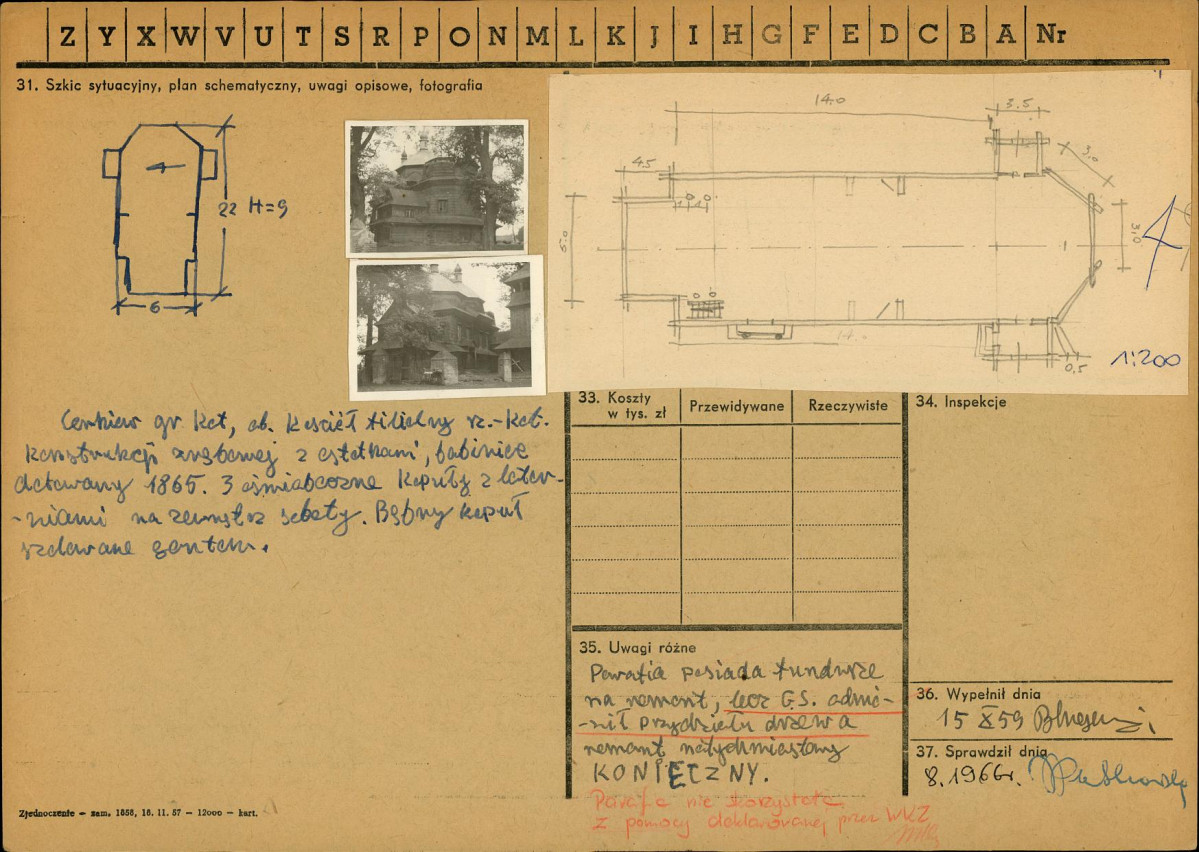 Z Y X W V U T S R P O N M L K J I H G F E D C B A Nr
31. Szkic sytuacyjny, plan schematyczny, uwagi opisowe, fotografia
22 H=9
6
14.0
3.5
4.5
3.0
6.0
3.0
14.0
0,5
1:200
Cerkiew gr. kat, ob. kościół filialny rz.-kat.
konstrukcji zrębowej z ostatkami, babiniec
datowany 1865. 3 ośmioboczne kopuły z latar-
-niami na zewnątrz Bębny kopuł
szalowane gontem.
33. Koszty w tys. zł
Przewidywane
Rzeczywiste
34. Inspekcje
35. Uwagi różne
Parafia posiada fundusze
na remont, lecz G.S. odmó-
-nił przydziału drzewa
remont natychmiastowy
KONIECZNY.
Parafia nie skorzystała
z pomocy deklarowanej przez WKZ
36. Wypełnił dnia
15 X 59
37. Sprawdził dnia
8.1966r.
Zjednoczenie – zam. 1858, 18. 11. 57 – 12000 – kart.